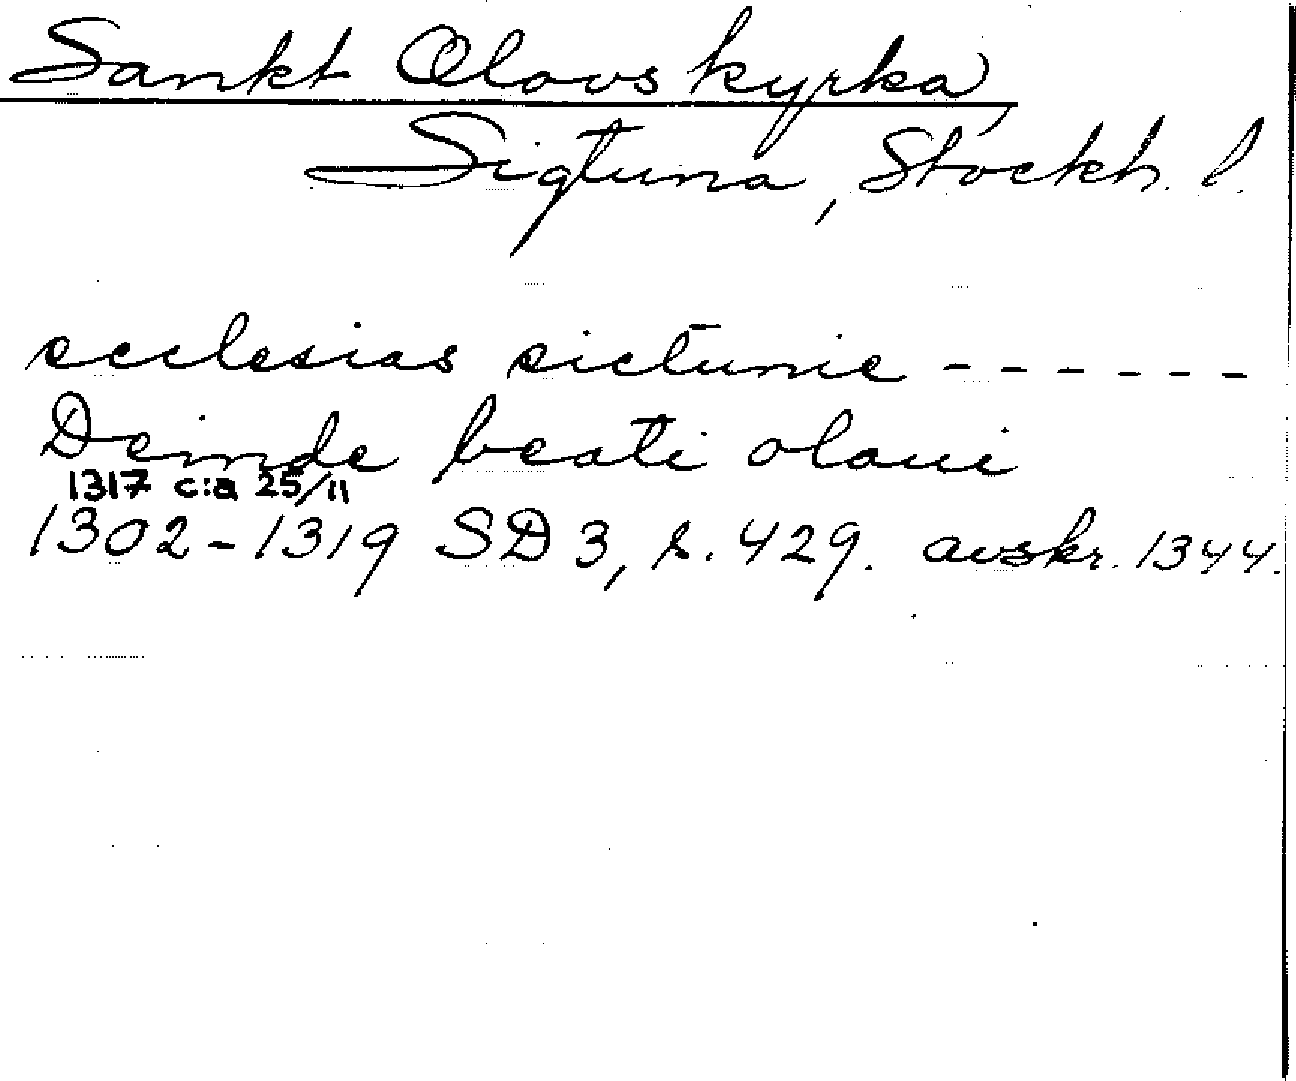 Sankt Olovs kyrka,
Sigtuna, Stockh. l.
ecclesias sictunie ------
Deinde beati olaui
1317 c:a 25/11
1302-1319 SD 3, s. 429. avskr. 1344.